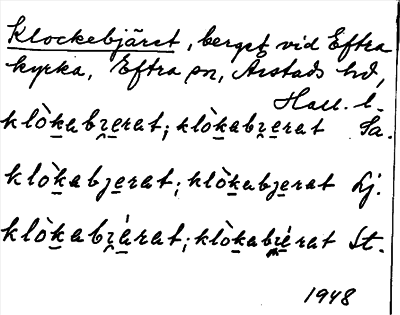 Klockebjäret, berget vid Eftra
kyrka, Eftra sn, Årstads hd,
Hall. l.
klòkabʒerat; klòkabʒerat Sa.
klòkabjerat; klòkabjerat Lj.
klòkabʒérat; klòkabʒérat St.
1948